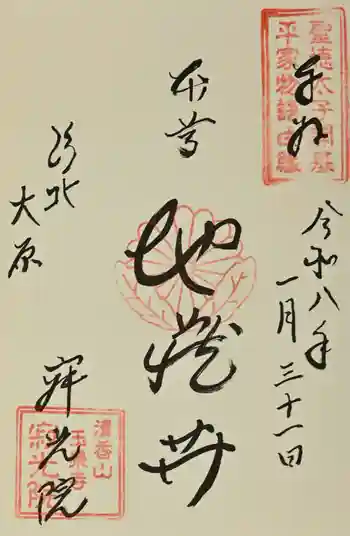 聖徳太子開基
平家物語由縁
奉拝
令和八年
一月三十一日
本尊
地蔵尊
洛北
大原
寂光院
清香山
玉泉寺
寂光院